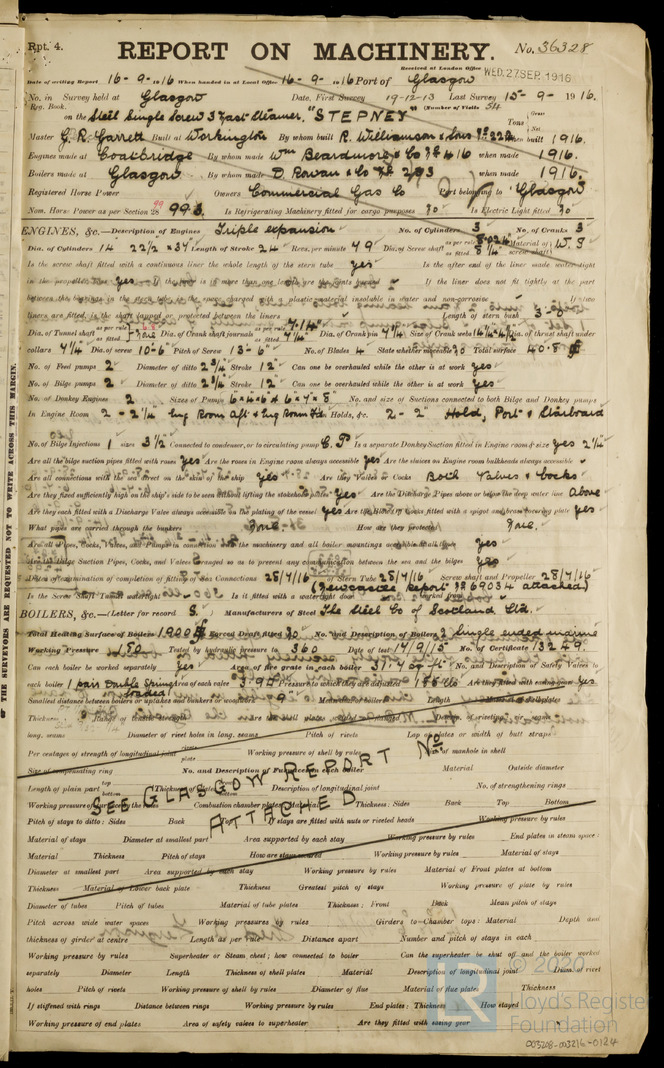 Rpt. 4.
REPORT ON MACHINERY.
No. 36328
Received at London Office WED. 27 SEP. 1916
Date of writing Report 16-9-1916 When handed in at Local Office 16-9-1916 Port of Glasgow
No. in Survey held at Glasgow Date, First Survey 19-12-13 Last Survey 15-9-1916.
Reg. Book. (Number of Visits 54
on the Steel Single Screw 3 Mast Steamer. "STEPNEY"
Tons Gross Net
Master G. R. Garrett Built at Workington By whom built R. Williamson & Sons No 222 When built 1916.
Engines made at Coatbridge By whom made Wm Beardmore & Co No 416 when made 1916.
Boilers made at Glasgow By whom made D. Rowan & Co No 293 when made 1916.
Registered Horse Power Owners Commercial Gas Co Port belonging to Glasgow
Nom. Horse Power as per Section 28 99 Is Refrigerating Machinery fitted for cargo purposes No Is Electric Light fitted No
ENGINES, &c.—Description of Engines Triple expansion No. of Cylinders 3 No. of Cranks 3
Dia. of Cylinders 14" 22 1/2" x 37" Length of Stroke 24" Revs. per minute 79 Dia. of Screw shaft as per rule as fitted 8 1/4" Material of screw shaft
Is the screw shaft fitted with a continuous liner the whole length of the stern tube yes Is the after end of the liner made water tight
in the propeller boss yes If the liner is in more than one length are the joints burned If the liner does not fit tightly at the part
between the bearings in the stern tube, is the space charged with a plastic material insoluble in water and non-corrosive If two
liners are fitted, is the shaft lapped or protected between the liners Length of stern bush
Dia. of Tunnel shaft as per rule as fitted Dia. of Crank shaft journals as per rule 7.14" as fitted 7 1/4" Dia. of Crank pin 7 1/4" Size of Crank webs Dia. of thrust shaft under
collars 7 1/4" Dia. of screw 10-6" Pitch of Screw 13-6" No. of Blades 4 State whether moveable No Total surface 40.8
No. of Feed pumps 2 Diameter of ditto 2 3/4" Stroke 12" Can one be overhauled while the other is at work yes
No. of Bilge pumps 2 Diameter of ditto 2 3/4" Stroke 12" Can one be overhauled while the other is at work yes
No. of Donkey Engines 2 Sizes of Pumps No. and size of Suctions connected to both Bilge and Donkey pumps
In Engine Room 2 - 2 1/4" Eng Room Aft & Eng Room Fwd In Holds, &c. 2 - 2" Hold, Port & Starboard
No. of Bilge Injections 1 sizes 3 1/2" Connected to condenser, or to circulating pump C.P. Is a separate Donkey Suction fitted in Engine room & size yes 2 1/4"
Are all the bilge suction pipes fitted with roses yes Are the roses in Engine room always accessible yes Are the sluices on Engine room bulkheads always accessible
Are all connections with the sea direct on the skin of the ship yes Are they Valves or Cocks Both Valves & Cocks
Are they fixed sufficiently high on the ship's side to be seen without lifting the stokehold plates yes Are the Discharge Pipes above or below the deep water line above
Are they each fitted with a Discharge Valve always accessible on the plating of the vessel yes Are the Blow Off Cocks fitted with a spigot and brass covering plate yes
What pipes are carried through the bunkers None. How are they protected None.
Are all Pipes, Cocks, Valves, and Pumps in connection with the machinery and all boiler mountings accessible at all times yes
Are the Bilge Suction Pipes, Cocks, and Valves arranged so as to prevent any communication between the sea and the bilges yes
Dates of examination of completion of fitting of Sea Connections 28/7/16 of Stern Tube 28/7/16 Screw shaft and Propeller 28/7/16
(Newcastle Report No 69034 attached)
Is the Screw Shaft Tunnel watertight Is it fitted with a watertight door worked from
BOILERS, &c.—(Letter for record S) Manufacturers of Steel The Steel Co of Scotland Ltd.
Total Heating Surface of Boilers 1900 Is Forced Draft fitted No No. and Description of Boilers 2 Single ended marine
Working Pressure 180 Tested by hydraulic pressure to 360 Date of test 17/9/15 No. of Certificate 13249.
Can each boiler be worked separately yes Area of fire grate in each boiler No. and Description of Safety Valves to
each boiler 1 pair Double Spring loaded Area of each valve 3.97 Pressure to which they are adjusted Are they fitted with easing gear yes
Smallest distance between boilers or uptakes and bunkers or woodwork Material of boiler Length Material of shell plates
Thickness Range of tensile strength Are the shell plates welded or flanged Descrip. of riveting: cir. seams
long. seams Diameter of rivet holes in long. seams Pitch of rivets Lap of plates or width of butt straps
Per centages of strength of longitudinal joint rivets plate Working pressure of shell by rules Size of manhole in shell
Size of compensating ring No. and Description of Furnaces in each boiler Material Outside diameter
SEE GLASGOW REPORT No ATTACHED
Length of plain part top bottom Thickness of plates bottom Description of longitudinal joint No. of strengthening rings
Working pressure of furnace by the rules Combustion chamber plates: Material Thickness: Sides Back Top Bottom
Pitch of stays to ditto: Sides Back Top If stays are fitted with nuts or riveted heads Working pressure by rules
Material of stays Diameter at smallest part Area supported by each stay Working pressure by rules End plates in steam space:
Material Thickness Pitch of stays How are stays secured Working pressure by rules Material of stays
Diameter at smallest part Area supported by each stay Working pressure by rules Material of Front plates at bottom
Thickness Material of Lower back plate Thickness Greatest pitch of stays Working pressure of plate by rules
Diameter of tubes Pitch of tubes Material of tube plates Thickness: Front Back Mean pitch of stays
Pitch across wide water spaces Working pressures by rules Girders to Chamber tops: Material Depth and
thickness of girder at centre Length as per rule Distance apart Number and pitch of stays in each
Working pressure by rules Superheater or Steam chest; how connected to boiler Can the superheater be shut off and the boiler worked
separately Diameter Length Thickness of shell plates Material Description of longitudinal joint Diam. of rivet
holes Pitch of rivets Working pressure of shell by rules Diameter of flue Material of flue plates Thickness
If stiffened with rings Distance between rings Working pressure by rules End plates: Thickness How stayed
Working pressure of end plates Area of safety valves to superheater Are they fitted with easing gear
THE SURVEYORS ARE REQUESTED NOT TO WRITE ACROSS THIS MARGIN.
LR © 2020
Lloyd's Register
Foundation
003208-003216-0124